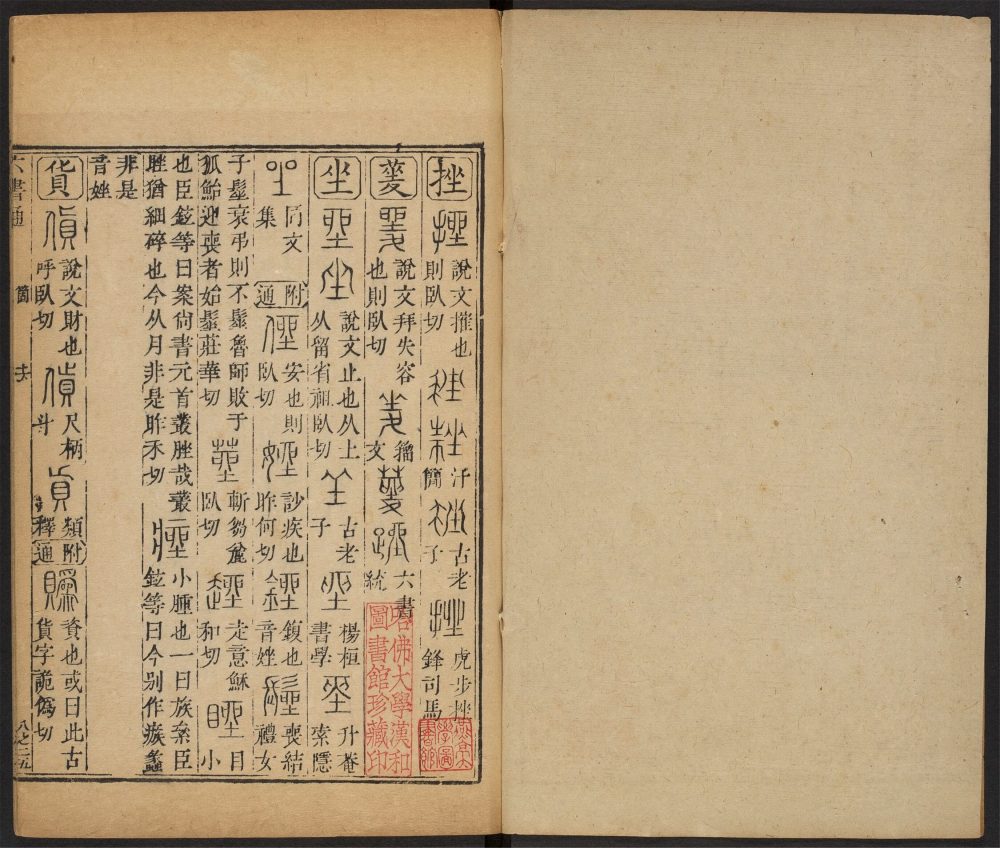 挫 說文摧也
則臥切
汗
簡
古老
子
虎步挫
鋒司馬
夎 說文拜失容
也則臥切
籀
文
六書
統
坐 說文止也从土
从留省徂臥切
古老
子
楊桓
書學
升菴
索隱
同文
集
附
通
安也則
臥切
訬疾也
昨何切
鍑也
音娙
喪結
禮女
子髽衰弔則不髽魯師敗于
狐鮐迎喪者始髽莊華切
斬芻
臥切
走意穌
和切
目
小
也臣鉉等曰案尚書元首叢脞哉叢
脞猶細碎也今从月非是昨禾切
小腫也一曰族絫臣
鉉等曰今別作瘯蠡
非是
音矬
貨 說文財也
呼臥切
尺柄
斗
類
釋
附
通
資也或曰此古
貨字詭僞切
六書通 箇 八之三五
哈佛大學漢和
圖書館珍藏印